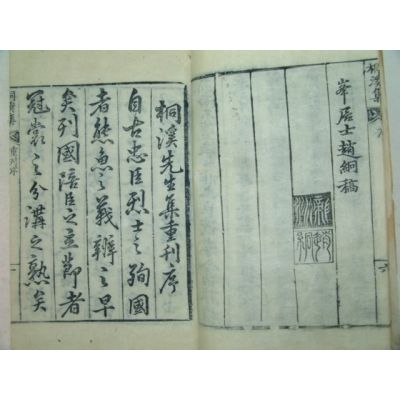 桐溪集
峯居士趙絅稿
桐溪先生集重刊序
自古忠臣烈士之殉國
者熊魚之義辨之早
矣列國陪臣之立節者
冠裳之分講之熟矣
桐溪集 重刊序 一